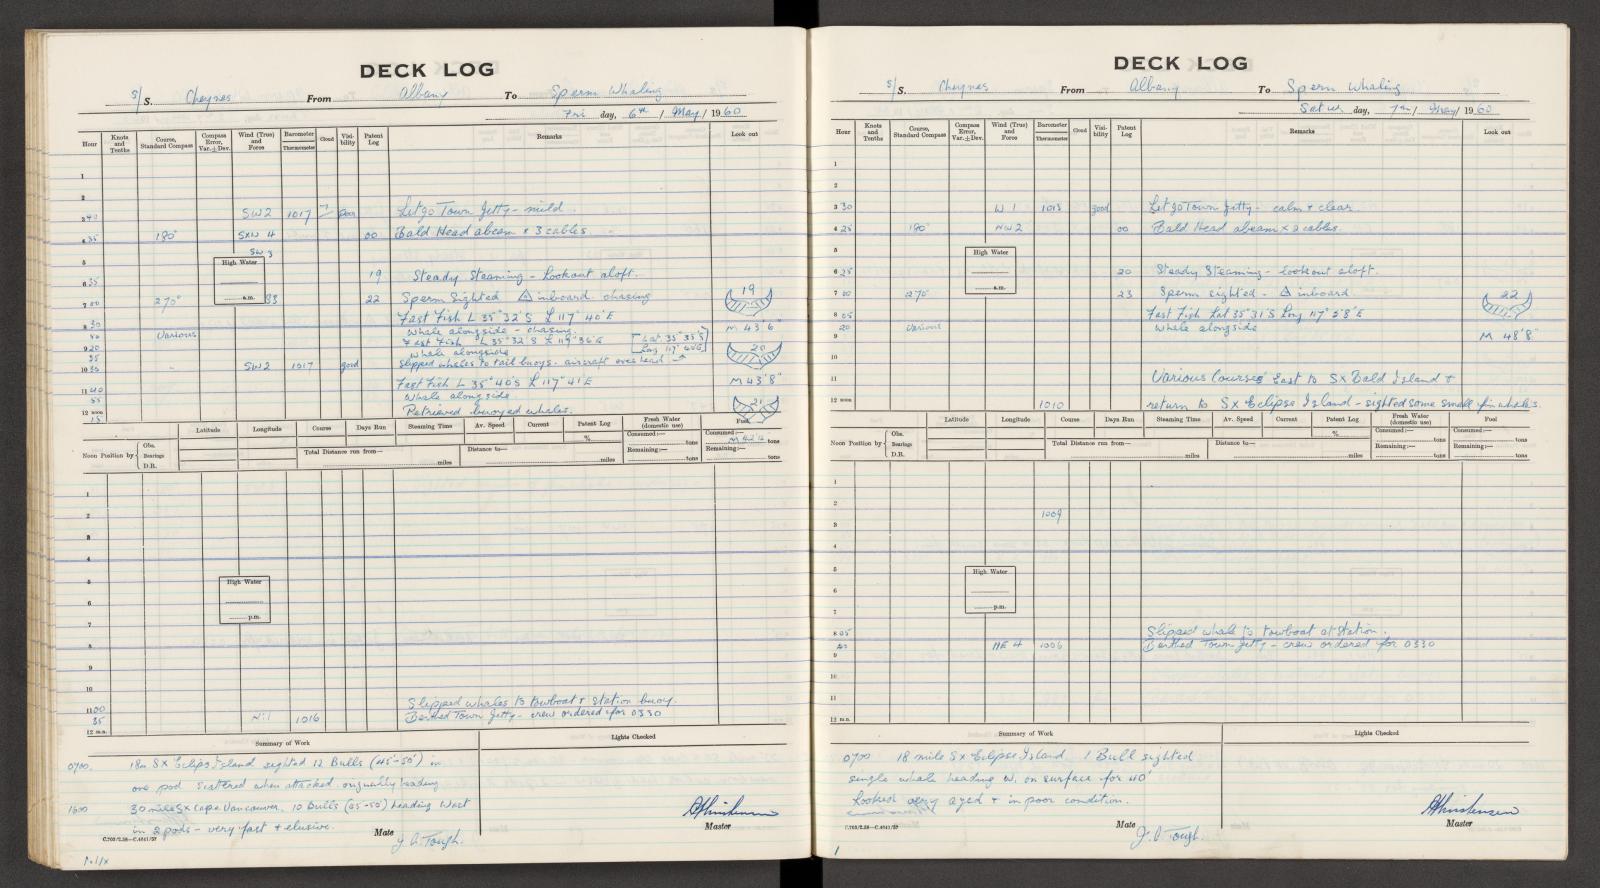 DECK LOG
S/S. Cheynes From Albany To Sperm Whaling
Fri day, 6th / May / 1960
Hour Knots and Tenths Course, Standard Compass Compass Error, Var. ± Dev. Wind (True) and Force Barometer Thermometer Cloud Visibility Patent Log Remarks Look out
1
2
3 40 SW 2 1017 7 Poor Let go Town Jetty - mild
4 35 180° SXW 4 00 Bald Head abeam x 3 cables.
5 SW 3
High Water
6 35 19 Steady Steaming - Lookout aloft.
a.m.
7 00 270° 22 Sperm Sighted inboard. chasing 19
Fast Fish L 35° 32' S L 117° 40' E
8 30 whale alongside - chasing. M 43' 6"
Various Fast Fish L 35° 32' S L 117° 36' E [Lat. 35° 35' S
9 20 whale alongside Long 117° E] 20
10 SW 2 1017 good Slipped whales to tail buoys. aircraft overhead
Fast Fish L 35° 40' S L 117° 41' E M 43' 8"
11 40
55 whale alongside
12 noon 15 Retrieved buoyed whales. 21
Noon Position by Obs. Bearings D.R. Latitude Longitude Course Days Run Steaming Time Av. Speed Current Patent Log % Fresh Water (domestic use) Fuel
Consumed:— Consumed:—
Total Distance run from— miles Distance to— miles Remaining:— tons Remaining:— tons
1
2
3
4
5
High Water
6
p.m.
7
8
9
10
11 00 Slipped whales to towboat & Station buoy.
35 Nil 1016 Berthed Town Jetty - crew ordered for 0330
12 m.n.
Summary of Work Lights Checked
0700. 18m S x Eclipse Island sighted 12 Bulls (45'-50') in
one pod Scattered when attacked, originally heading
1600 30 miles S x Cape Vancouver. 10 Bulls (45'-50') heading West
in 2 pods - very fast & elusive.
Mate J. C. Tough. Master
DECK LOG
S/S. Cheynes From Albany To Sperm Whaling
Satur day, 7th / May / 1960
Hour Knots and Tenths Course, Standard Compass Compass Error, Var. ± Dev. Wind (True) and Force Barometer Thermometer Cloud Visibility Patent Log Remarks Look out
1
2
3 30 W 1 1013 good Let go Town Jetty - calm & clear.
4 25 180° NW 2 00 Bald Head abeam x 2 cables.
5
High Water
6 25 20 Steady Steaming - lookout aloft.
a.m.
7 00 270° 23 Sperm sighted - inboard. 22
8 05 Fast Fish Lat 35° 31' S Long 117° 58' E
20 Various whale alongside
9 M 48' 8"
10
11 Various Courses East to S x Bald Island &
12 noon 1010 return to S x Eclipse Island - sighted some small fin whales.
Noon Position by Obs. Bearings D.R. Latitude Longitude Course Days Run Steaming Time Av. Speed Current Patent Log % Fresh Water (domestic use) Fuel
Consumed:— Consumed:—
Total Distance run from— miles Distance to— miles Remaining:— tons Remaining:— tons
1
2
1009
3
4
5
High Water
6
p.m.
7
8 05 Slipped whale to towboat at Station.
NE 4 1006 Berthed Town Jetty - crew ordered for 0330
9
10
11
12 m.n.
Summary of Work Lights Checked
0700 18 mile S x Eclipse Island 1 Bull sighted
single whale heading W. on surface for 40'
Looked very aged & in poor condition.
Mate J. C. Tough Master